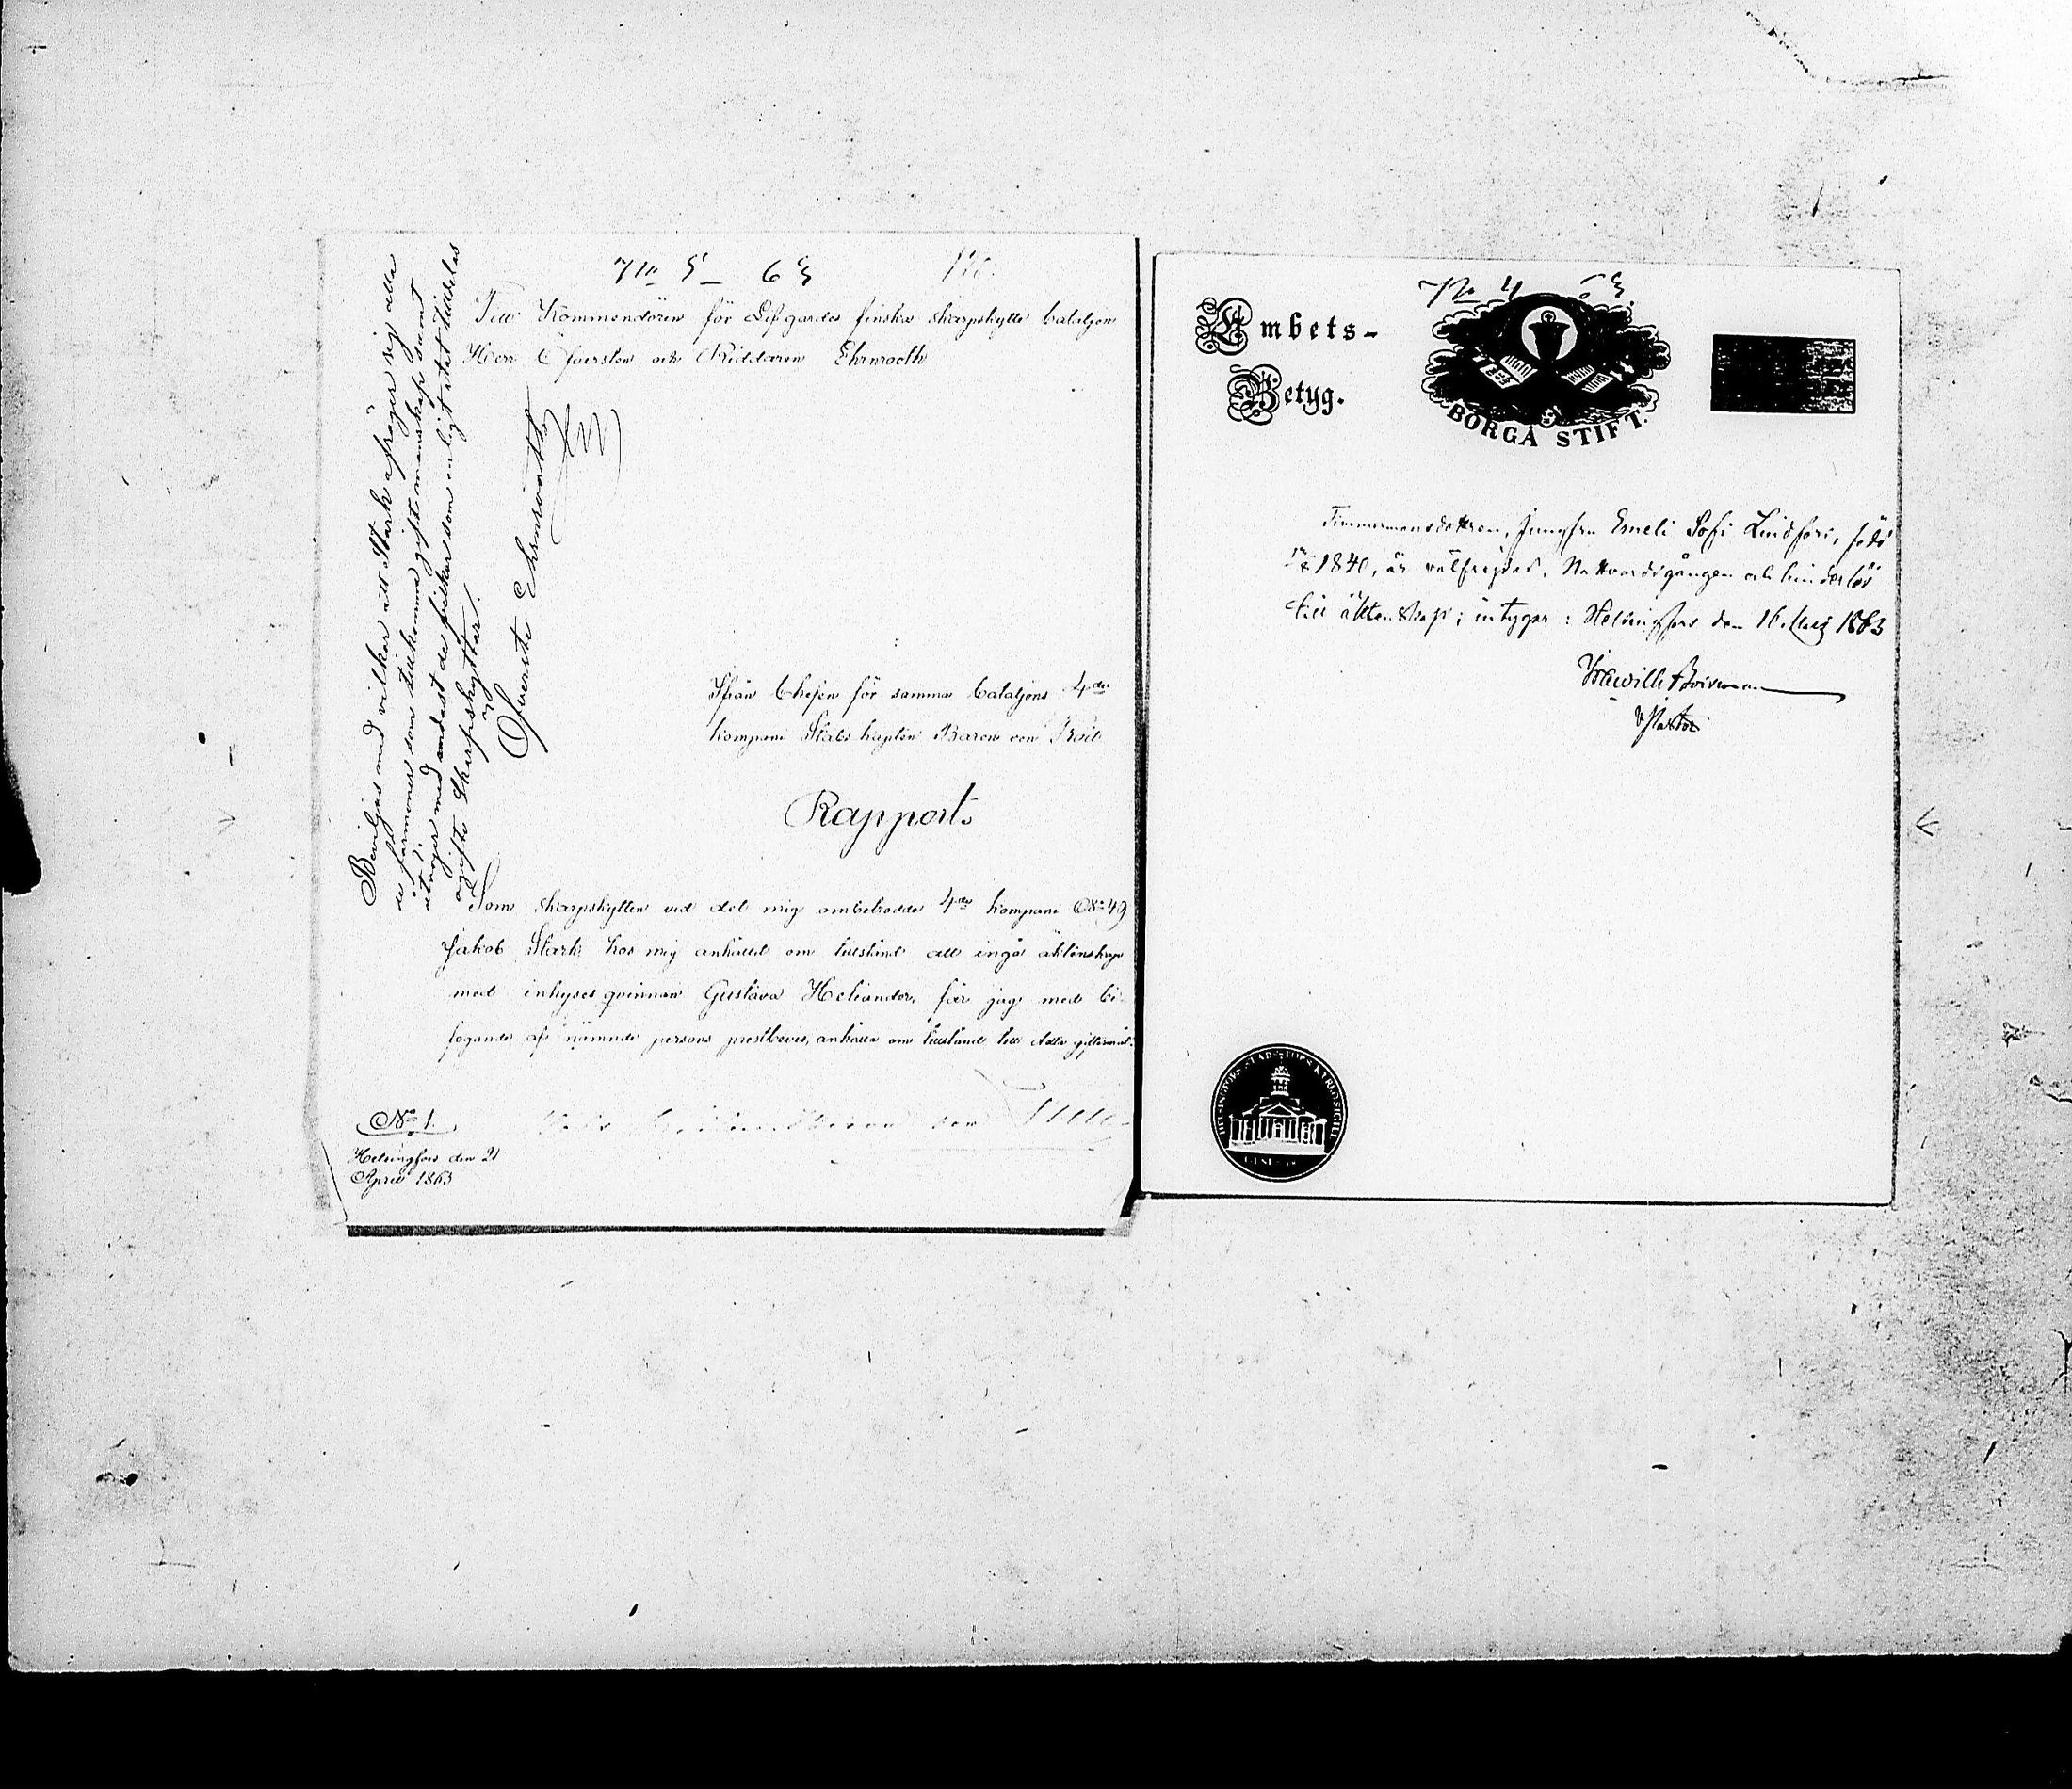 No 5 63
Till Kommendören för Lifgardes finska skarpskytte bataljon
Herr Öfversten och Riddaren Ehrnrooth
Beviljas med vilkor att Stark afsäger sig alla
de förmoner som tillkomma gift manskap samt
åtnöjer med endast de vilkor som enligt stat tilldelas
ogifte Skarpskyttar.
Öfverste Ehrnrooth
Ifrån Chefen för samma bataljons 4de
kompani Stabs kapten Baron von Troil
Rapport.
Som skarpskytten vid det mig anbetrodda 4de kompani No 49
Jakob Stark hos mig anhållit om tillstånd att ingå äktenskap
med inhyses qvinnan Gustava Heliander, får jag med bi-
fogande af nämnde persons prestbevis, anhålla om tillstånd till detta giftermål.
No 1.
Helsingfors den 21
April 1863
von Troil
No 4 63.
Embets-
Betyg.
BORGÅ STIFT.
Timmermansdottren, Jungfru Emeli Sofi Lindfors, född
1840, är välfrejdad, Nattvardsgången och hinderlös
till äktenskap; intygar: Helsingfors den 16 Maj 1863